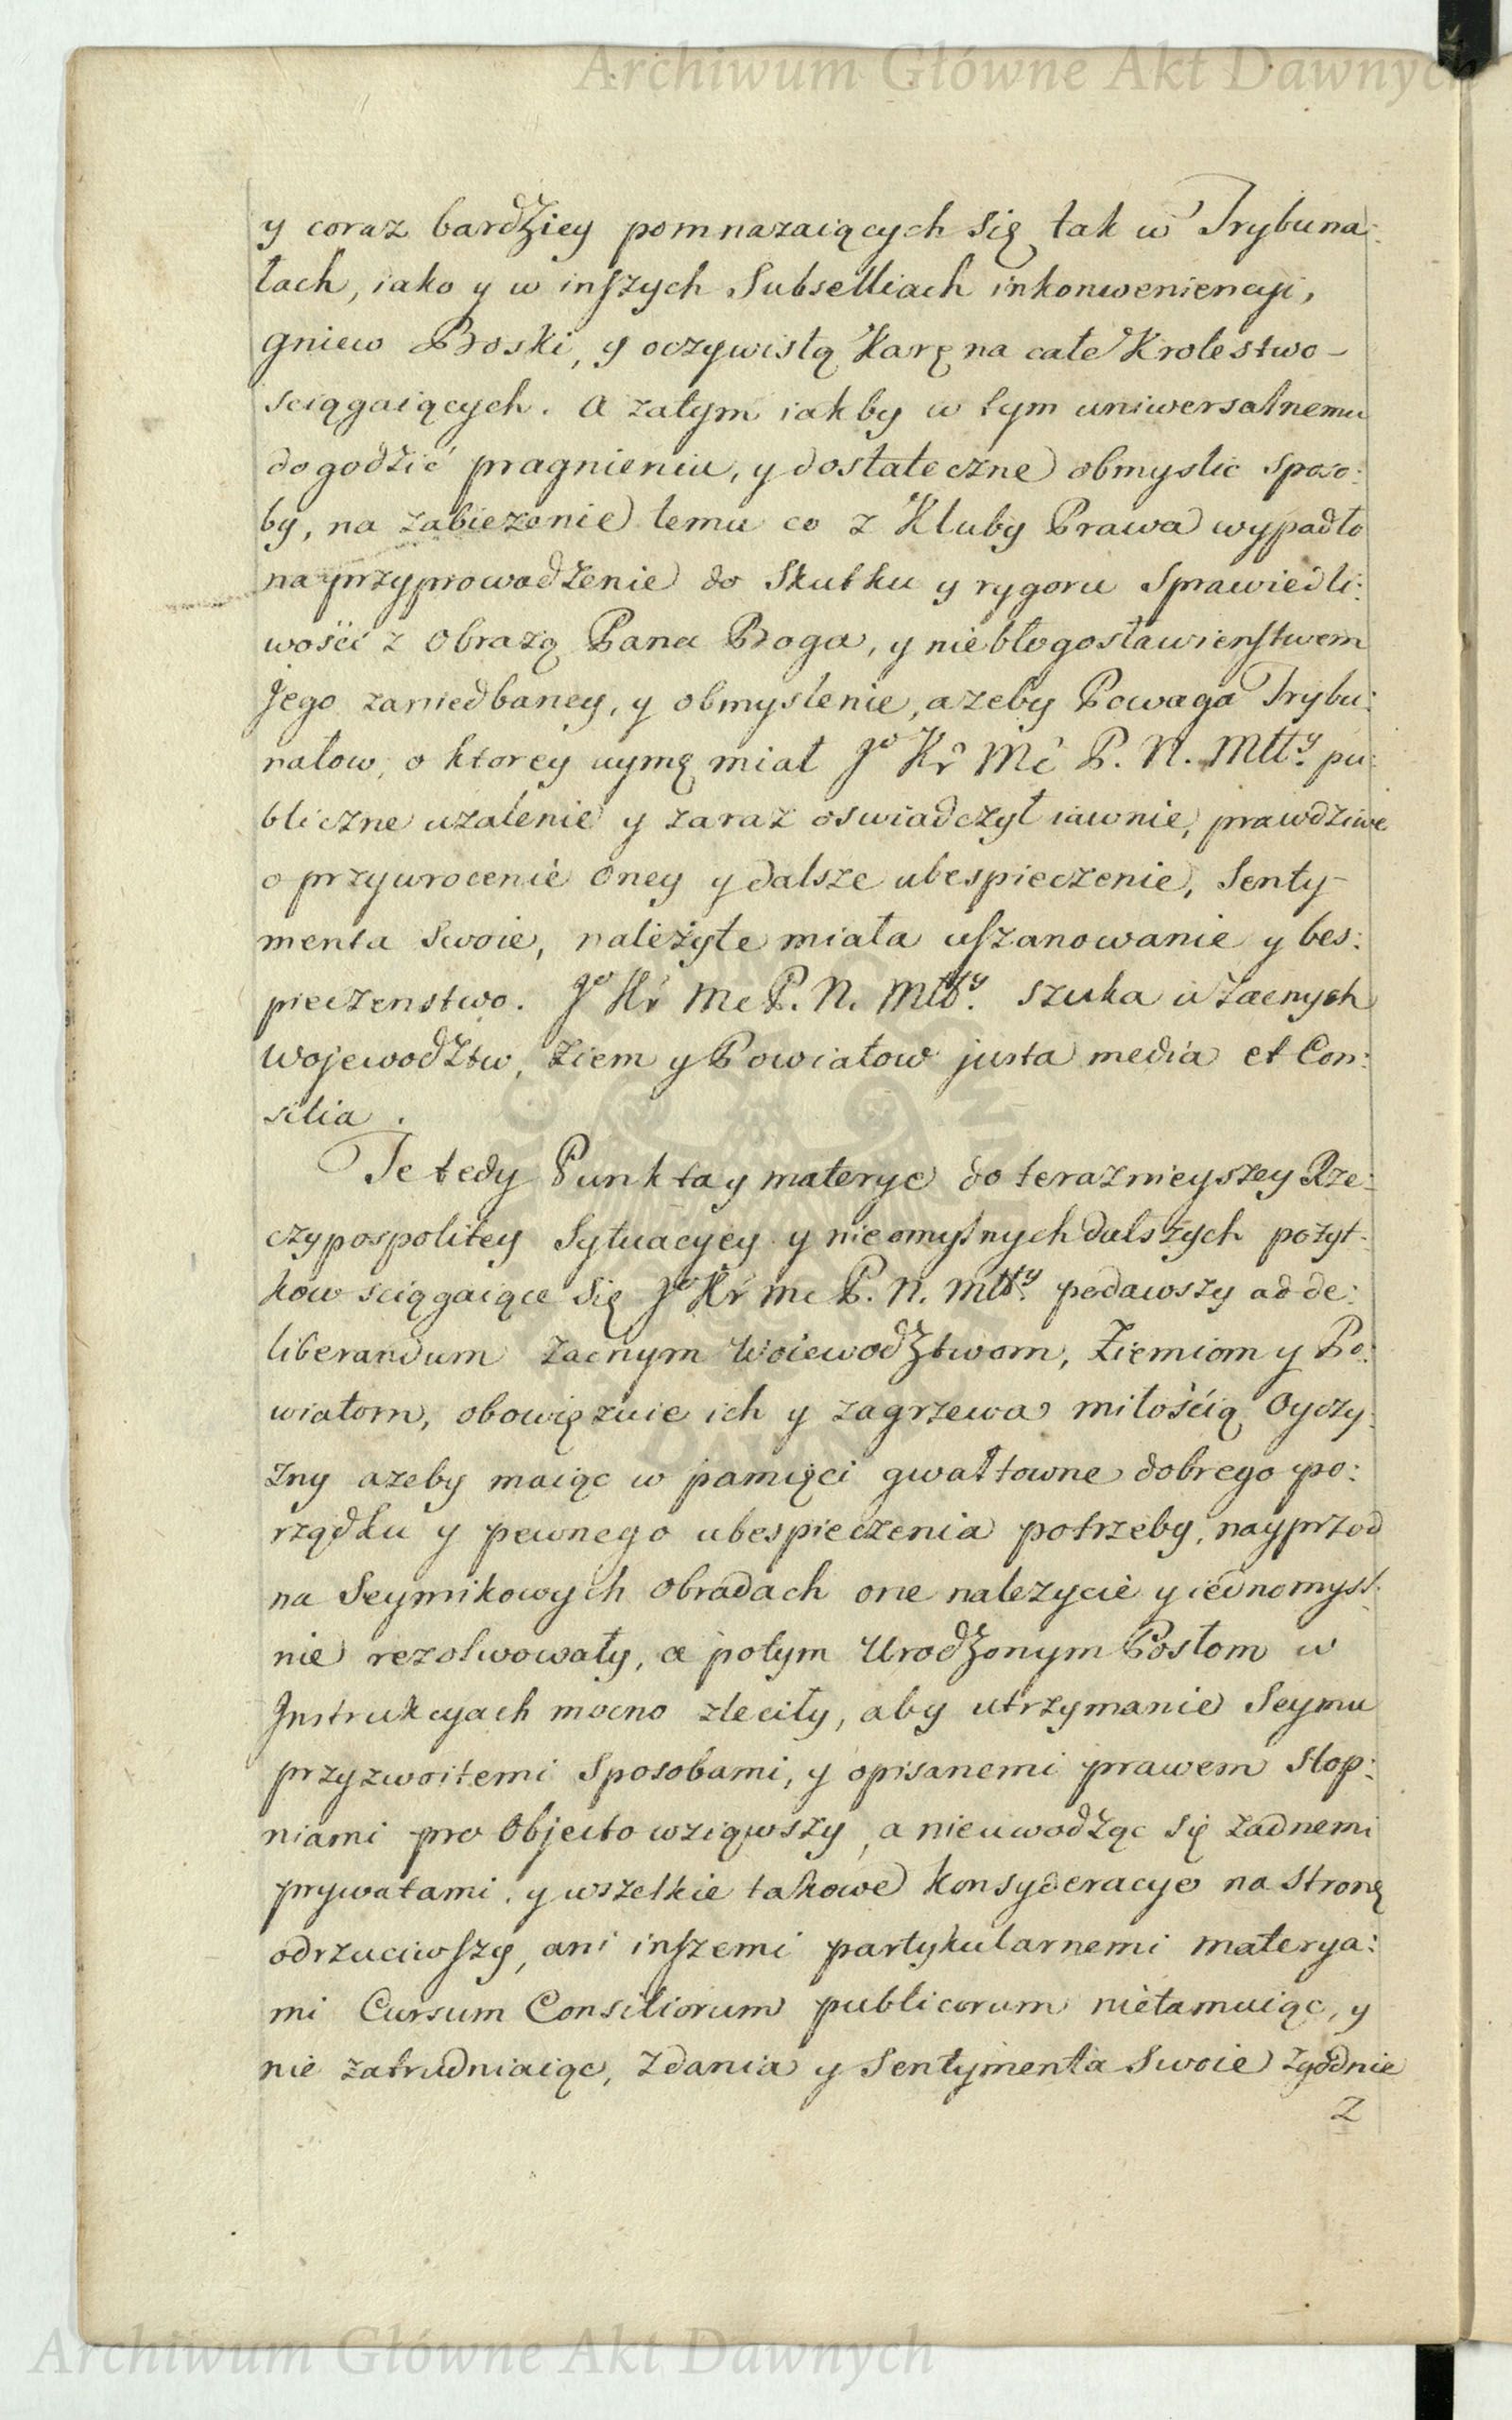 Archiwum Główne Akt Dawnych
y coraz bardziey pomnazaiących się tak w Trybuna:
łach, iako y w inszych Subselliach inkonweniencyi,
gniew Boski, y oczywistą Karę na całe Krolestwo –
sciągaiących. A zatym iakby w tym uniwersalnemu
dogodzić pragnieniu, y dostateczne obmyslic sposo:
by, na zabiezenie temu co z Kluby Prawa wypadło
na przyprowadzenie do Skutku y rygoru Sprawiedli:
wości z Obrazą Pana Boga, y niebłogosławienstwem
Jego zaniedbaney, y obmyslenie, azeby Powaga Trybu:
nałow, o ktorey uymę miał Jo Kr Mć P. N. Mtty pu:
bliczne uzalenie y zaraz oswiadczył iawnie, prawdziwe
o przywrocenie Oney y dalsze ubespieczenie, Senty-
menta Swoie, należyte miała uszanowanie y bes:
pieczenstwo. Jo Kr Mc P. N. Mtty szuka u Zacnych
Wojewodztw, Ziem y Powiatow justa media et Con:
silia.
Te tedy Punkta y materye do terazniejszey Rze:
czypospolitey Sytuacyey y nieomylnych dalszych pożyt-
kow sciągaiące się Jo Kr Mc P. N. Mtty podawszy ad de:
liberandum Zacnym Woiewodztwom, Ziemiom y Po:
wiatom, obowięzuie ich y zagrzewa miłością Oyczy:
zny azeby maiąc w pamięci gwałtowne dobrego po:
rządku y pewnego ubespieczenia potrzeby, nayprzod
na Seymikowych Obradach one nalezycie y iednomysl:
nie rezolwowały, a potym Urodzonym Posłom w
Instrukcyach mocno zleciły, aby utrzymanie Seymu
przyzwoitemi Sposobami, y opisanemi prawem Stop:
niami pro Objecto wziąwszy, a nieuwodząc się zadnemi
prywatami, y wszelkie takowe Konsyderacye na Stronę
odrzuciwszy, ani inszemi partykularnemi materya:
mi Cursum Consiliorum publicorum nietamuiąc, y
nie zatrudniaiąc, zdania y Sentymenta Swoie zgodnie
z
Archiwum Główne Akt Dawnych